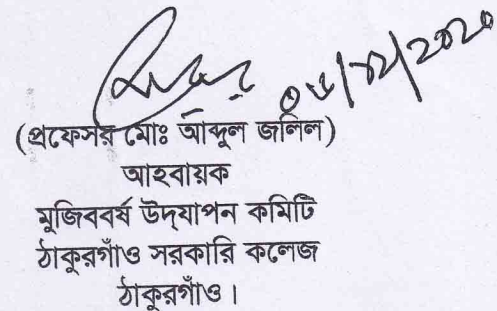 (প্রফেসর মোঃ আব্দুল জলিল)
আহবায়ক
মুজিববর্ষ উদ্‌যাপন কমিটি
ঠাকুরগাঁও সরকারি কলেজ
ঠাকুরগাঁও।